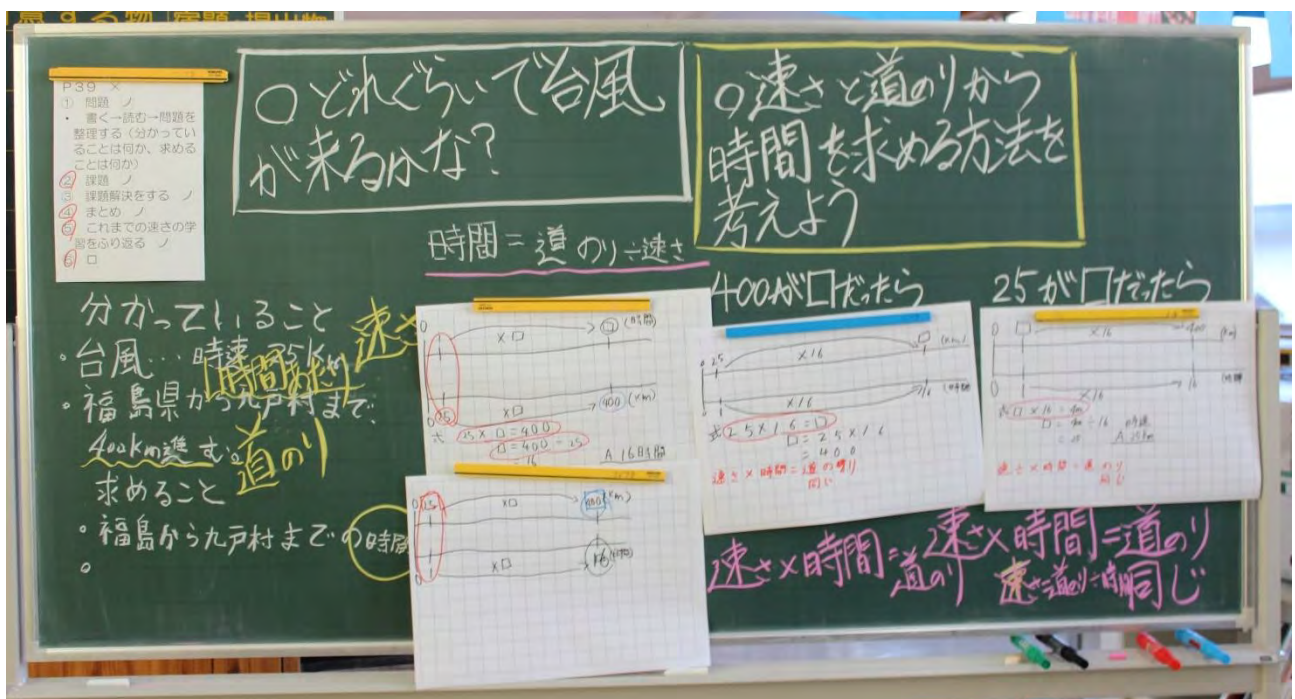 P39 ×
① 問題 ノ
・ 書く→読む→問題を
整理する（分かってい
ることは何か、求める
ことは何か）
② 課題 ノ
③ 課題解決をする ノ
④ まとめ ノ
⑤ これまでの速さの学
習をふり返る ノ
⑥ □
○どれぐらいで台風
が来るかな？
○速さと道のりから
時間を求める方法を
考えよう
時間＝道のり÷速さ
分かっていること
・台風…時速25km
1時間あたり
速さ
・福島県から九戸村まで
400km進む。
道のり
求めること
・福島から九戸村までの時間
0 ×□ □(時間)
0 25 ×□ 400(km)
式 25×□＝400
□＝400÷25
＝16
A 16時間
0 25 ×□ 400(km)
0 ×□ 16(時間)
400が□だったら
0 25 ×16 □(km)
0 ×16 16(時間
式 25×16＝□
□＝25×16
＝400
速さ×時間＝道のり
同じ
25が□だったら
0 □ ×16 400(km)
0 ×16 16(時間
式 □×16＝400
□＝400÷16
＝25
時速
A 25km
速さ×時間＝道のり
同じ
速さ×時間＝道のり
速さ×時間＝道のり
速さ＝道のり÷時間
同じ